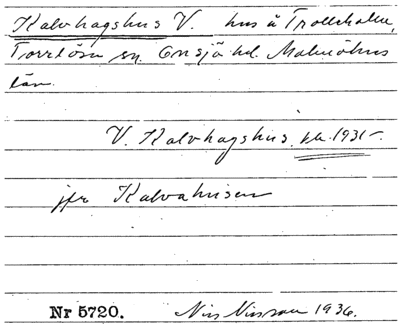 Kalvhagshus V. hus å Trolleholm,
Torrlösa sn. Onsjö hd. Malmöhus
län.
V. Kalvhagshus, kk. 1931-.
jfr Kalvahusen
Nr 5720. Nils Nilsson 1936.